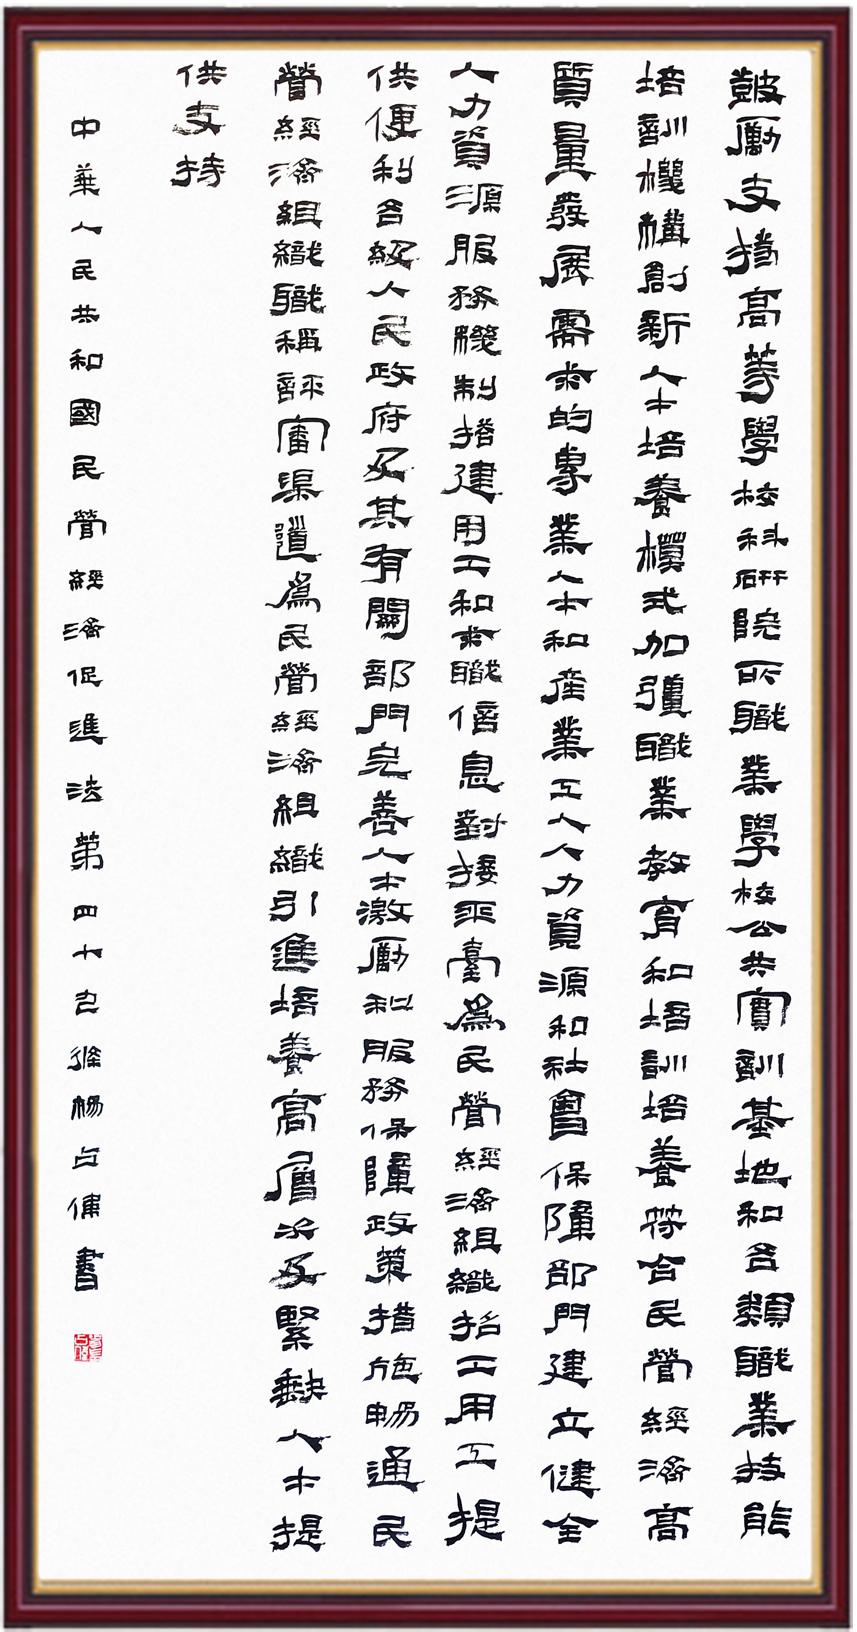 鼓勵支持高等學校科研院所職業學校公共實訓基地和各類職業技能
培訓機構創新人才培養模式加彊職業教育和培訓培養符合民營經濟高
質量發展需求的專業人才和產業工人人力資源和社會保障部門建立健全
人力資源服務機制搭建用工和求職信息對接平臺爲民營經濟組織招工用工提
供便利各級人民政府及其有關部門完善人才激勵和服務保障政策措施暢通民
營經濟組織職稱評審渠道爲民營經濟組織引進培養高層次及緊缺人才提
供支持
中華人民共和國民營經濟促進法第四十九條楊占傭書